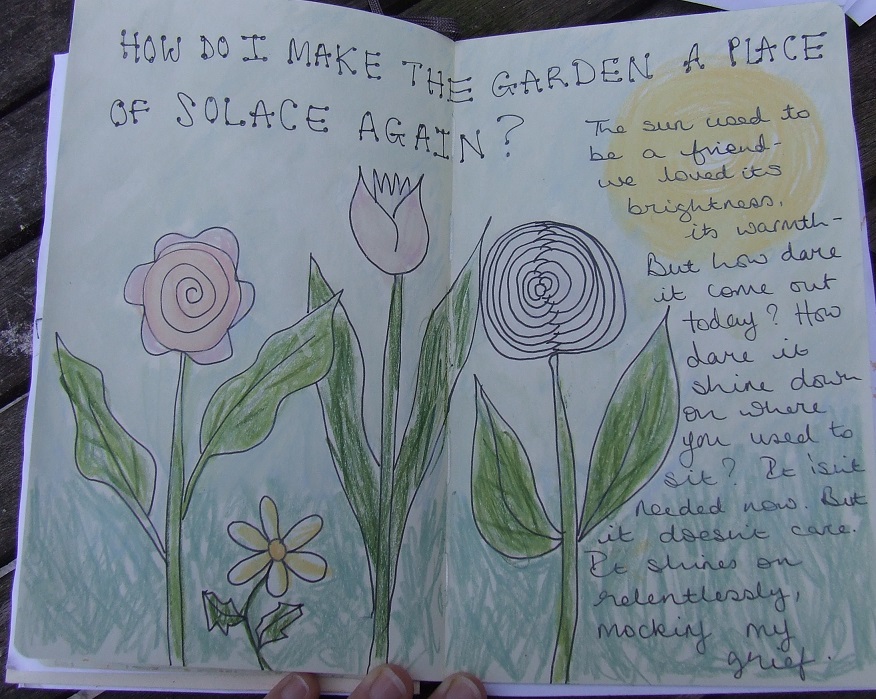 HOW DO I MAKE THE GARDEN A PLACE
OF SOLACE AGAIN?
The sun used to
be a friend-
we loved its
brightness,
its warmth-
But how dare
it come out
today? How
dare it
shine down
on where
you used to
sit? It isn't
needed now. But
it doesn't care.
It shines on
relentlessly,
mocking my
grief.